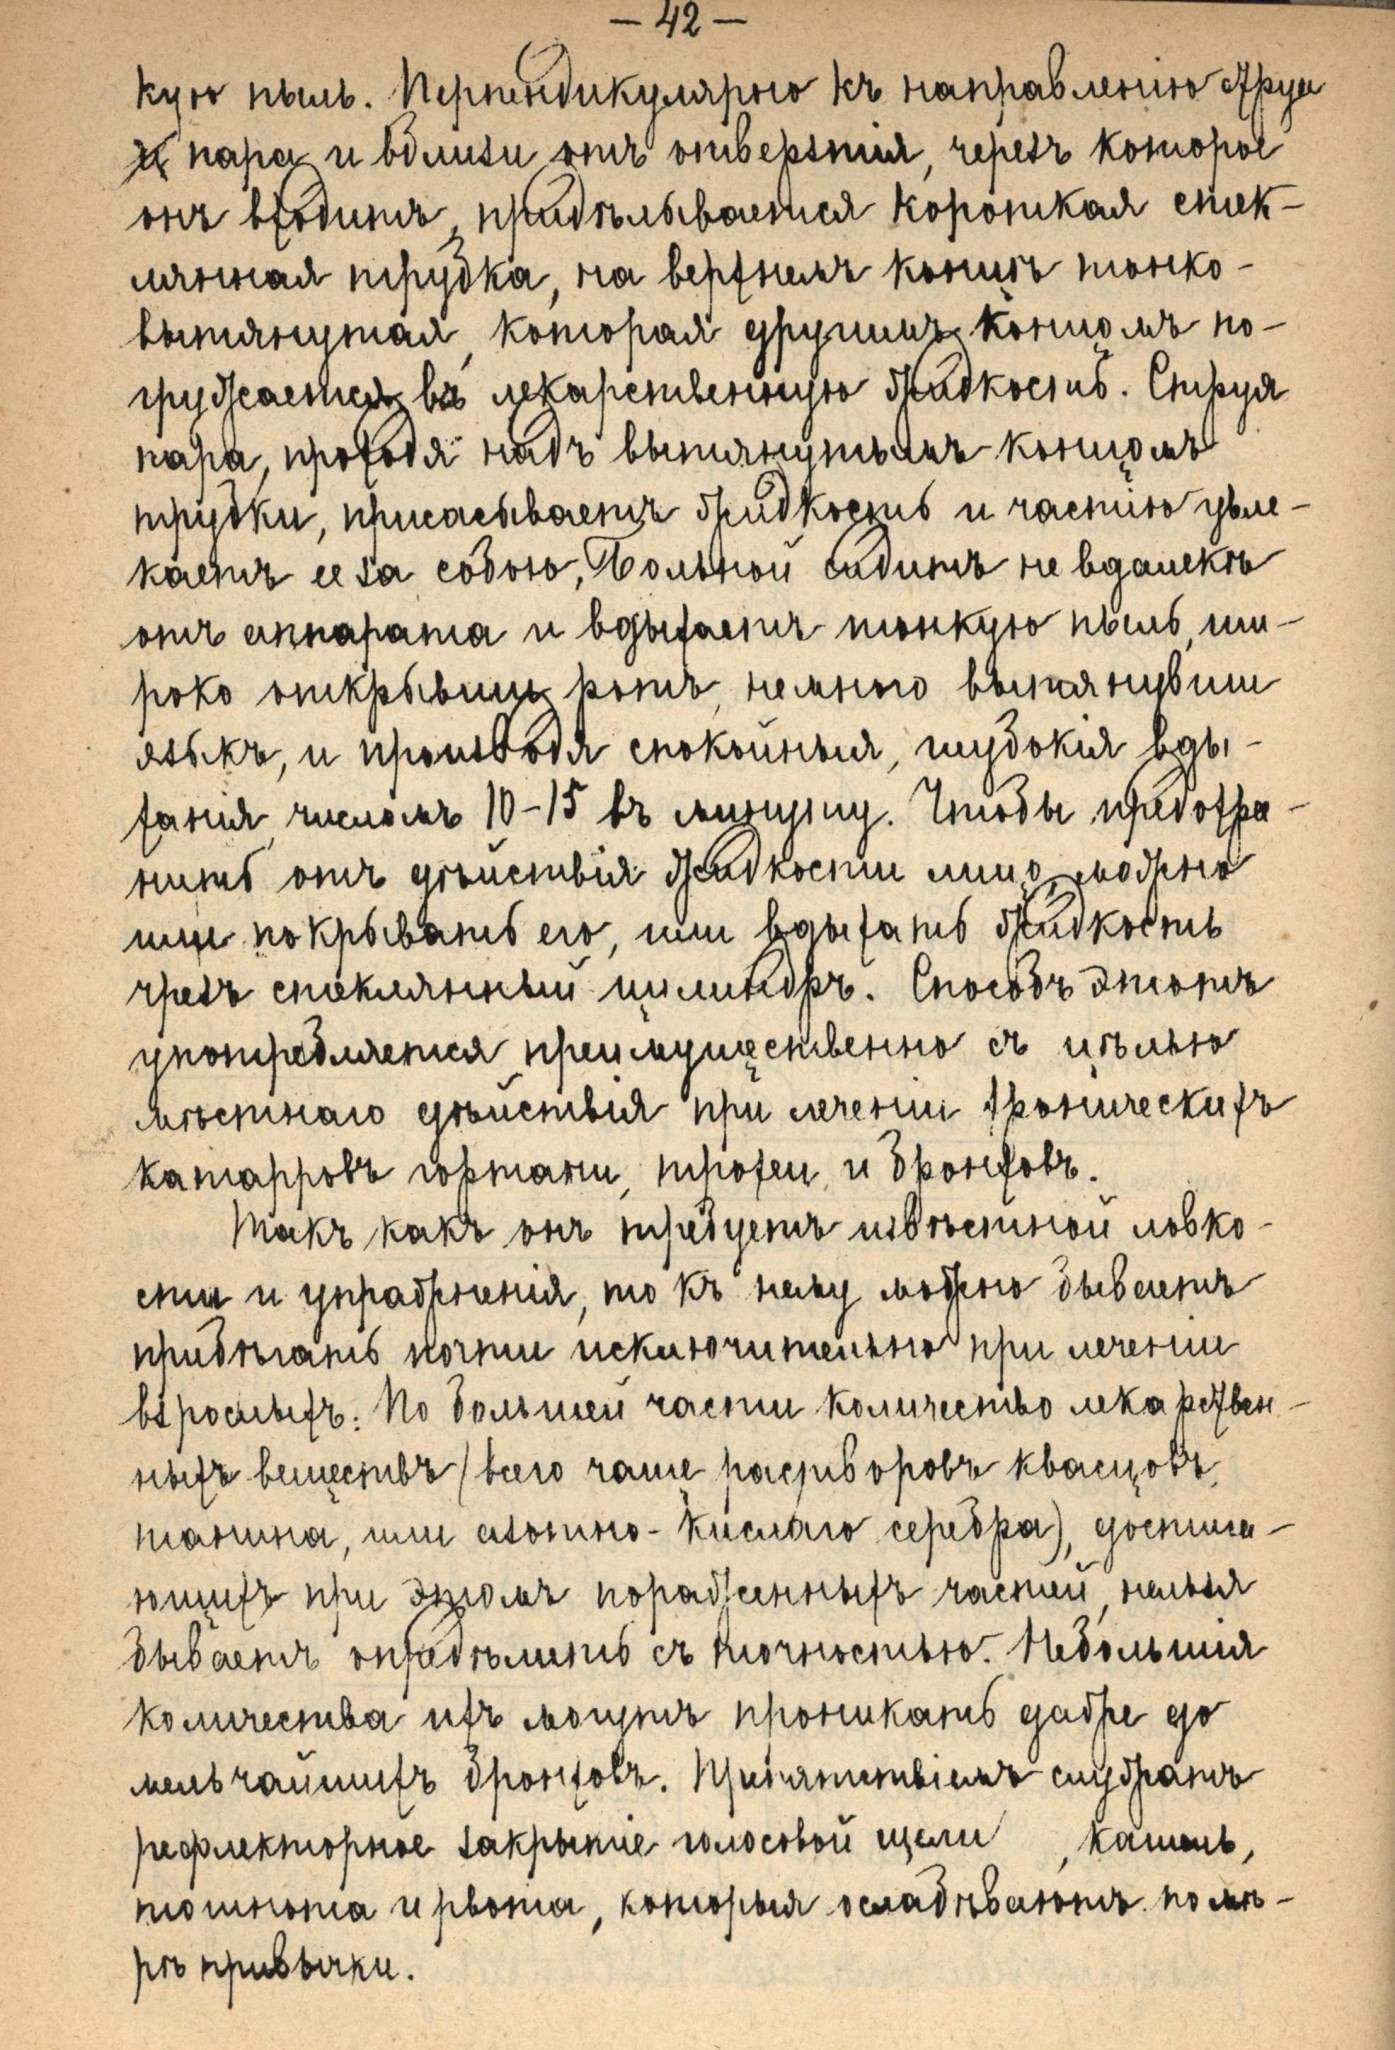 — 42 —
кую пыль. Перпендикулярно къ направленію струи
пара и вблизи отъ отверзтія, черезъ которое
онъ входитъ, придѣлывается короткая стек-
лянная трубка, на верхнемъ концѣ тонко-
вытянутая, которая другимъ концомъ по-
гружается въ лекарственную жидкость. Струя
пара, проходя надъ вытянутымъ концомъ
трубки, присасываетъ жидкость и частію увле-
каетъ ее за собою. Больной сидитъ не вдалекѣ
отъ аппарата и вдыхаетъ тонкую пыль, ши-
роко открывши ротъ, немного вытянувши
языкъ, и производя спокойныя, глубокія вды-
ханія, числомъ 10-15 въ минуту. Чтобы предохра-
нить отъ дѣйствія жидкости лицо, можно
или покрывать его, или вдыхать жидкость
чрезъ стеклянный цилиндръ. Способъ этотъ
употребляется преимущественно съ цѣлью
мѣстнаго дѣйствія при леченіи хроническихъ
катарровъ гортани, трохеи и бронховъ.
Такъ какъ онъ требуетъ извѣстной ловко-
сти и упражненія, то къ нему можно бываетъ
прибѣгать почти исключительно при леченіи
взрослыхъ. По большей части количество лекарствен-
ныхъ веществъ (всего чаще растворовъ квасцовъ,
танина, или азотно-кислаго серебра), достига-
ющихъ при этомъ пораженныхъ частей, нельзя
бываетъ опредѣлить съ точностью. Небольшія
количества ихъ могутъ проникать даже до
мельчайшихъ бронховъ. Препятствіемъ служатъ
рефлекторное закрытіе голосовой щели , кашель,
тошнота и рвота, которыя ослабѣваютъ по мѣ-
рѣ привычки.